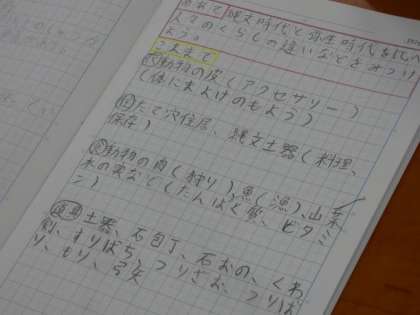 めあて 縄文時代と弥生時代を比べ
人々のくらしの違いなどをみつけ
よう。
ここまで
衣 動物の皮(アクセサリー)
(体にまよけのもよう)
住 たて穴住居、縄文土器(料理、
保存)
食 動物の肉(狩り)、魚(漁)、山菜
木の実など(たんぱく質、ビタミ
ン)
道具 土器、石包丁、石おの、くわ
剣、すりばち、つりざお、つりば
り、もり、弓矢